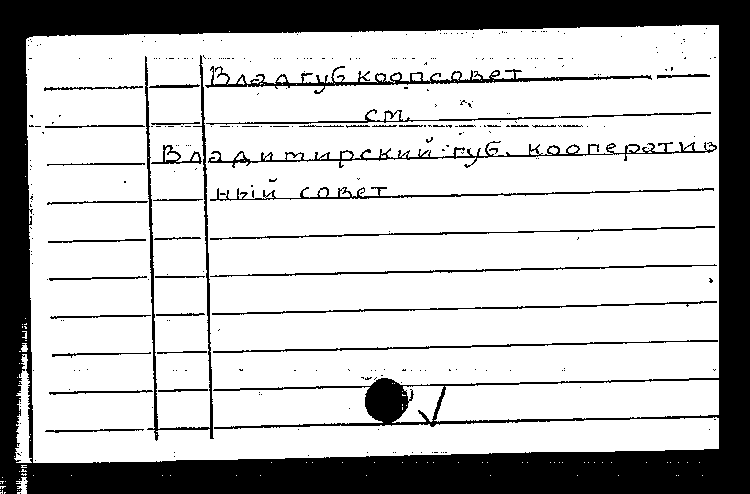 Владгубкоопсовет
см.
Владимирский губ. кооператив
ный совет